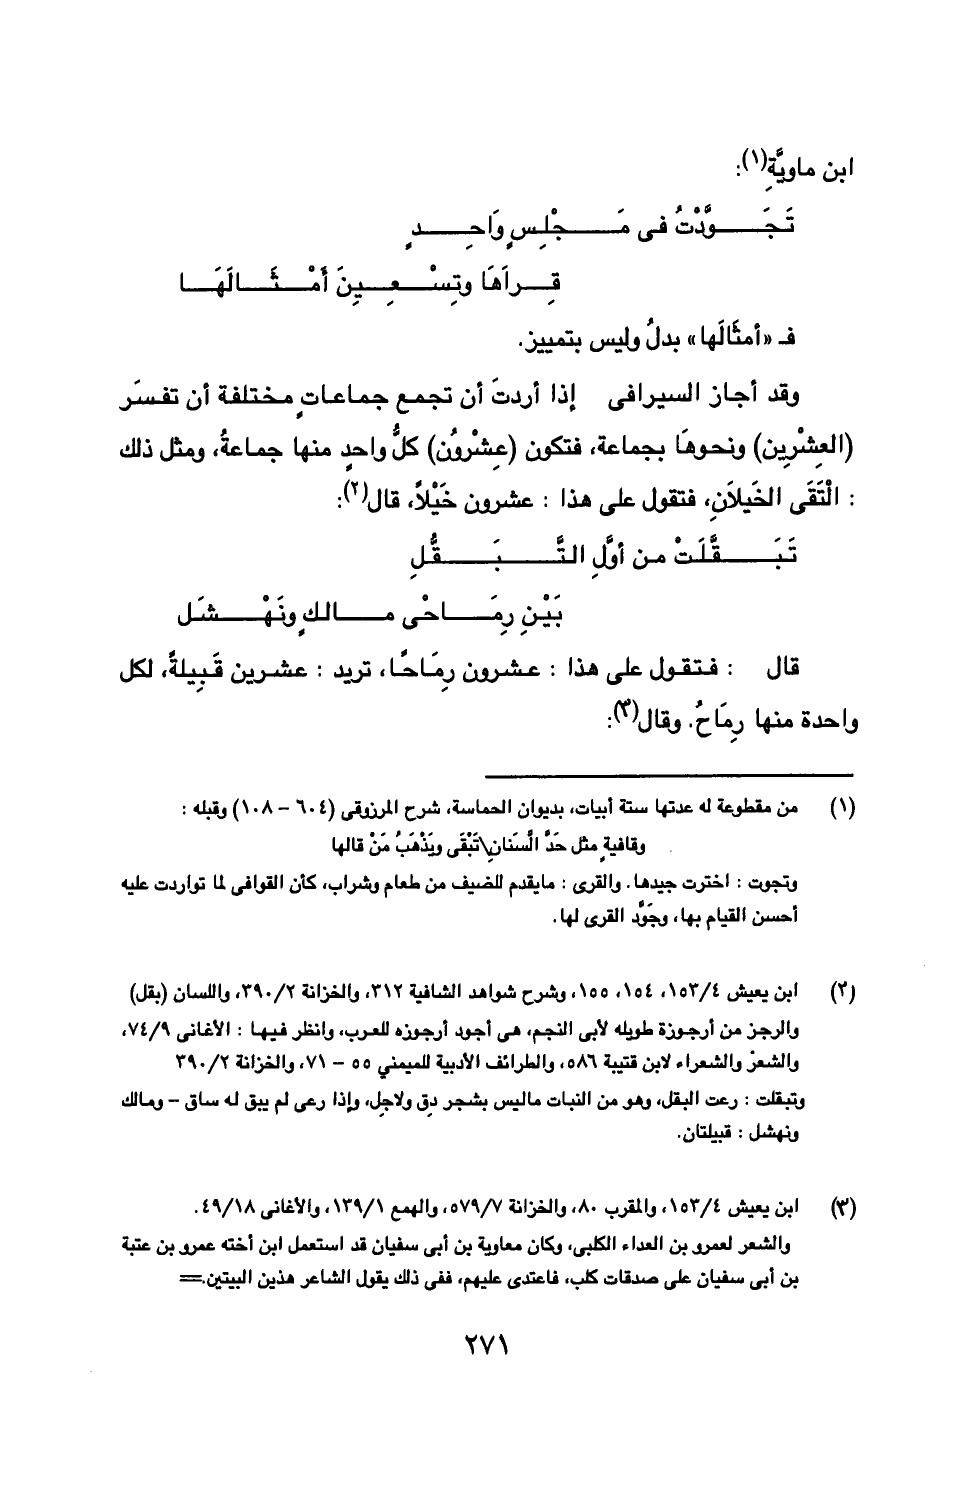 ابن ماويَّةِ(١):
تَجَـــوَّدْتُ فى مَـــجْلِسٍ وَاحِـــدٍ
قِـــرَاهَا وتِسْـــعِـــينَ أَمْـــثَـــالَهَـــا
فـ «أمثَالَها» بدلُ وليس بتمييز.
وقد أجاز السيرافى إذا أردتَ أن تجمع جماعاتٍ مختلفة أن تفسَر
(العِشْرِين) ونحوهَا بجماعة، فتكون (عِشْرُون) كلُّ واحدٍ منها جماعةُ، ومثل ذلك
: الْتَقَى الخَيلاَنِ، فتقول على هذا : عشرون خَيْلاً، قال(٢):
تَبَـــقَّلَتْ من أوَّلِ التَّـــبَـــقُّلِ
بَيْنِ رِمَـــاحْى مـــالكٍ ونَهْـــشَل
قال : فتقول على هذا : عشرون رِمَاحًا، تريد : عشرين قَبِيلةً، لكل
واحدة منها رِمَاحُ. وقال(٣):
(١) من مقطوعة له عدتها ستة أبيات، بديوان الحماسة، شرح المرزوقى (٦٠٤ – ١٠٨) وقبله :
وقافيةٍ مثل حَدَّ السَّنَانِ\تَبْقَى ويَذْهَبُ مَنْ قالها
وتجوت : اخترت جيدها. والقرى : مايقدم للضيف من طعام وشراب، كأن القوافى لما تواردت عليه
أحسن القيام بها، وجَوَّد القرى لها.
(٢) ابن يعيش ١٥٣/٤، ١٥٤، ١٥٥، وشرح شواهد الشافية ٣١٢، والخزانة ٣٩٠/٢، واللسان (بقل)
والرجز من أرجوزة طويله لأبى النجم، هى أجود أرجوزه للعرب، وانظر فيها : الأغانى ٧٤/٩،
والشعرْ والشعراء لابن قتيبة ٥٨٦، والطرائف الأدبية للميمني ٥٥ – ٧١، والخزانة ٣٩٠/٢
وتبقلت : رعت البقل، وهو من النبات ماليس بشجر دِق ولاجِل، وإذا رعى لم يبق له ساق – ومالك
ونهشل : قبيلتان.
(٣) ابن يعيش ١٥٣/٤، والمقرب ٨٠، والخزانة ٥٧٩/٧، والهمع ١٣٩/١، والأغانى ٤٩/١٨.
والشعر لعمرو بن العداء الكلبى، وكان معاوية بن أبى سفيان قد استعمل ابن أخته عمرو بن عتبة
بن أبى سفيان على صدقات كلب، فاعتدى عليهم، ففى ذلك يقول الشاعر هذين البيتين.==
٢٧١